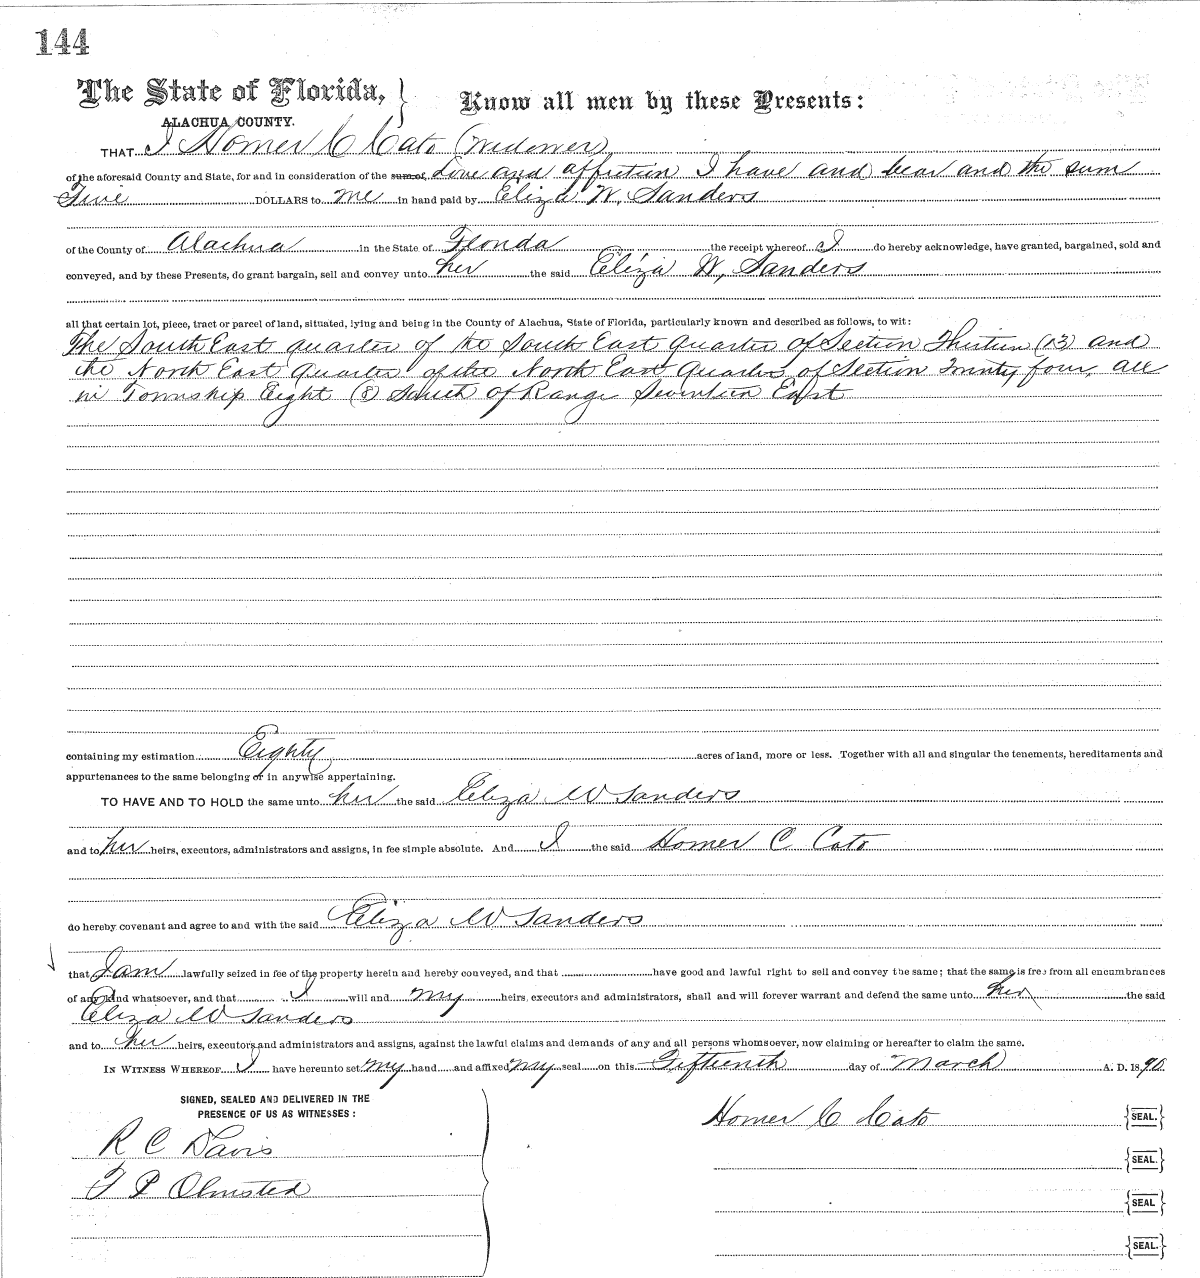 144
The State of Florida, } Know all men by these Presents:
ALACHUA COUNTY.
THAT I Homer C Cato (widower)
of the aforesaid County and State, for and in consideration of the sum of, Love and affection I have and bear and the sum
Five DOLLARS to me in hand paid by Eliza W. Sanders
of the County of Alachua in the State of Florida the receipt whereof I do hereby acknowledge, have granted, bargained, sold and
conveyed, and by these Presents, do grant bargain, sell and convey unto her the said Eliza W, Sanders
all that certain lot, piece, tract or parcel of land, situated, lying and being in the County of Alachua, State of Florida, particularly known and described as follows, to wit:
The South East quarter of the South East Quarter of Section Thirteen (13) and
the North East Quarter of the North East Quarter of Section Twenty four, all
in Township Eight (8) South of Range Seventeen East
containing my estimation Eighty acres of land, more or less. Together with all and singular the tenements, hereditaments and
appurtenances to the same belonging or in anywise appertaining.
TO HAVE AND TO HOLD the same unto her the said Eliza W Sanders
and to her heirs, executors, administrators and assigns, in fee simple absolute. And I the said Homer C Cato
do hereby covenant and agree to and with the said Eliza W Sanders
that I am lawfully seized in fee of the property herein and hereby conveyed, and that have good and lawful right to sell and convey the same; that the same is free from all encumbrances
of any kind whatsoever, and that I will and my heirs, executors and administrators, shall and will forever warrant and defend the same unto her the said
Eliza W Sanders
and to her heirs, executors and administrators and assigns, against the lawful claims and demands of any and all persons whomsoever, now claiming or hereafter to claim the same.
IN WITNESS WHEREOF I have hereunto set my hand and affixed my seal on this Fifteenth day of March A. D. 1890.
SIGNED, SEALED AND DELIVERED IN THE
PRESENCE OF US AS WITNESSES:
Homer C Cato {SEAL.}
R C Davis
{SEAL.}
T P Olmsted
{SEAL}
{SEAL.}